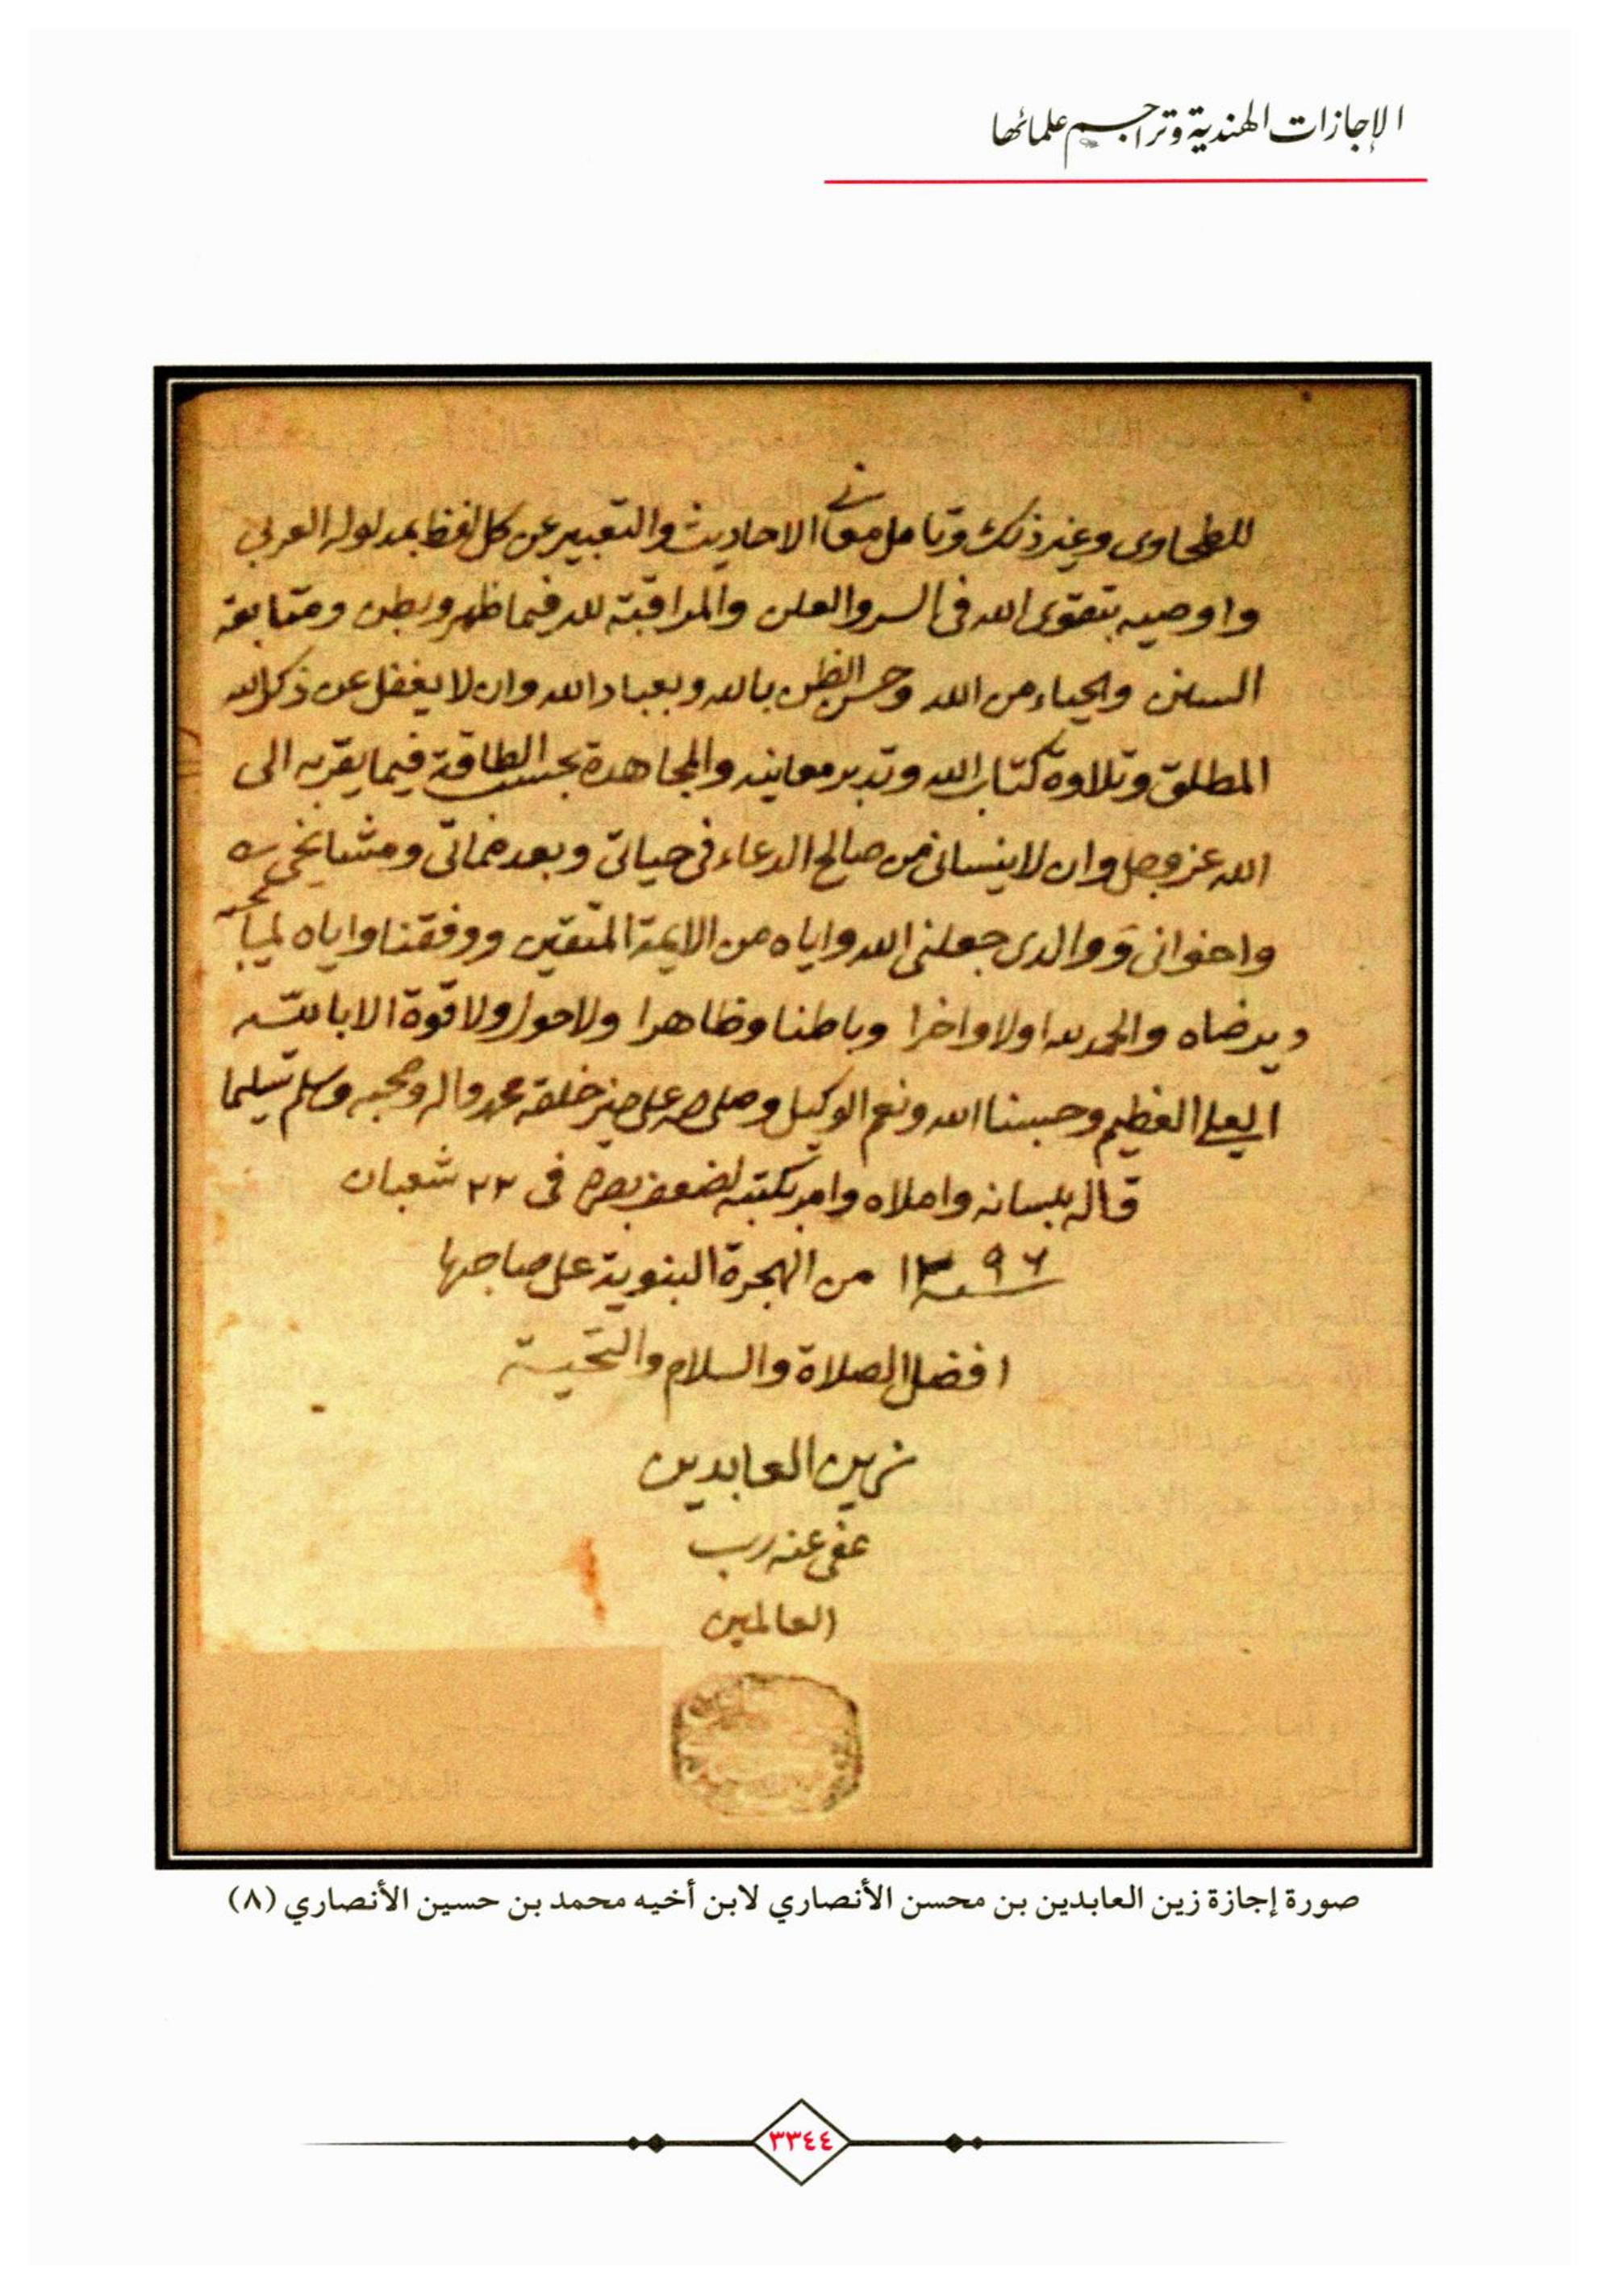 الإجازات الهندية وتراجم علمائها
للطحاوى وغير ذلك وتامل معانى الاحاديث والتعبير عن كل لفظ بمدلوله العربي
واوصيه بتقوى الله فى السر والعلن والمراقبة لله فيما ظهر وبطن ومتابعة
السنن والحياء من الله وحسن الظن بالله وبعباد الله وان لا يغفل عن ذكر الله
المطلق وتلاوة كتاب الله وتدبر معانيه والمجاهدة بحسب الطاقة فيما يقربه الى
الله عز وجل وان لا ينسانى من صالح الدعاء فى حياتى وبعد مماتى ومشايخى
واخوانى ووالدى جعلنى الله واياه من الايمة المتقين ووفقنا واياه لما يحبه
ويرضاه والحمد لله اولا واخرا وباطنا وظاهرا ولا حول ولا قوة الا بالله
العلي العظيم وحسبنا الله ونعم الوكيل وصلى الله على خير خلقه محمد واله وصحبه وسلم تسليما
قاله بلسانه واملاه وامر بكتبه لضعف بصره فى ٢٣ شعبان
سنة ١٢٩٦ من الهجرة النبوية على صاحبها
افضل الصلاة والسلام والتحية
زين العابدين
عفى عنه رب
العالمين
صورة إجازة زين العابدين بن محسن الأنصاري لابن أخيه محمد بن حسين الأنصاري (٨)
٣٣٤٤